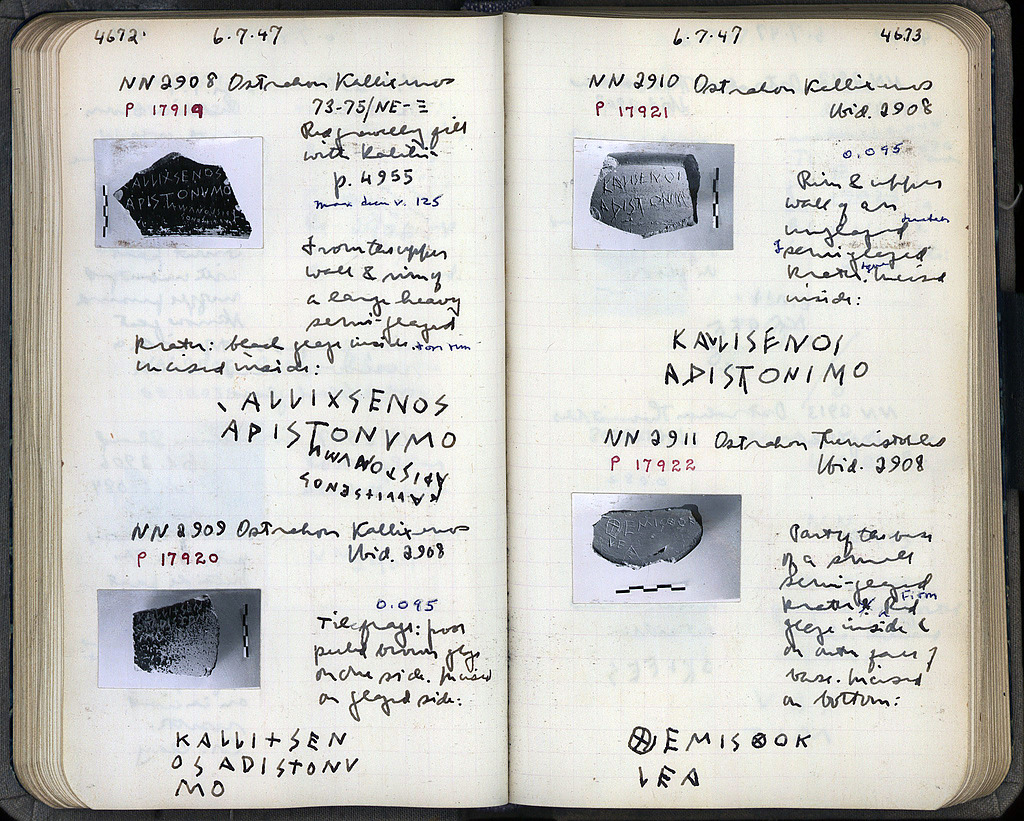 4672 6·7·47
NN 2908 Ostrakon Kallixenos
P 17919 73-75/NE-Ξ
Red gravelly fill
with Kallixe-
p. 4955
max dim v. 125
From the upper
wall & rim of
a large heavy
semi-glazed
krater: black glaze inside + on rim
incised inside:
ALLIXSENOS
ARISTONVMO
ARISTONVMO
KALLI+SENOS
NN 2909 Ostrakon Kallixenos
P 17920 Ibid. 2908
0.095
Tile frag: poor
pulled brown glaze
on one side. Incised
on glazed side:
KALLI+SEN
OS ADISTONV
MO
6·7·47 4673
NN 2910 Ostrakon Kallixenos
P 17921 Ibid. 2908
0.095
Rim & upper
wall of an
unglazed
semi-glazed
krater. Incised
inside:
KALLISENOS
ADISTONIMO
NN 2911 Ostrakon Themistokles
P 17922 Ibid. 2908
Part of the base
of a small
semi-glazed
krater. Firm Red
glaze inside &
on outer face of
base. Incised
on bottom:
⊗EMIS⊗OK
LEA